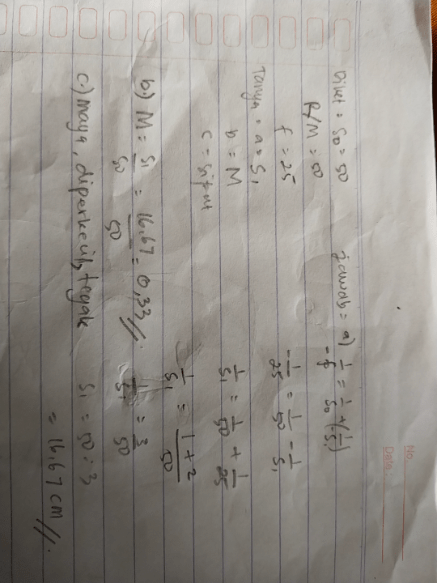 No.
Date.
Dikt = S₀ = 50
R/M = 50
f = 25
Tanya = a = S₁
b = M
c = Sifat
Jawab = a) 1/-f = 1/S₀ + (1/-S₁)
-1/25 = 1/50 - 1/S₁
1/S₁ = 1/50 + 1/25
1/S₁ = 1+2/50
1/S₁ = 3/50
S₁ = 50 : 3
= 16,67 cm //.
b.) M = S₁/S₀ = 16,67/50 = 0,33 //.
c.) Maya, diperkecil, tegak